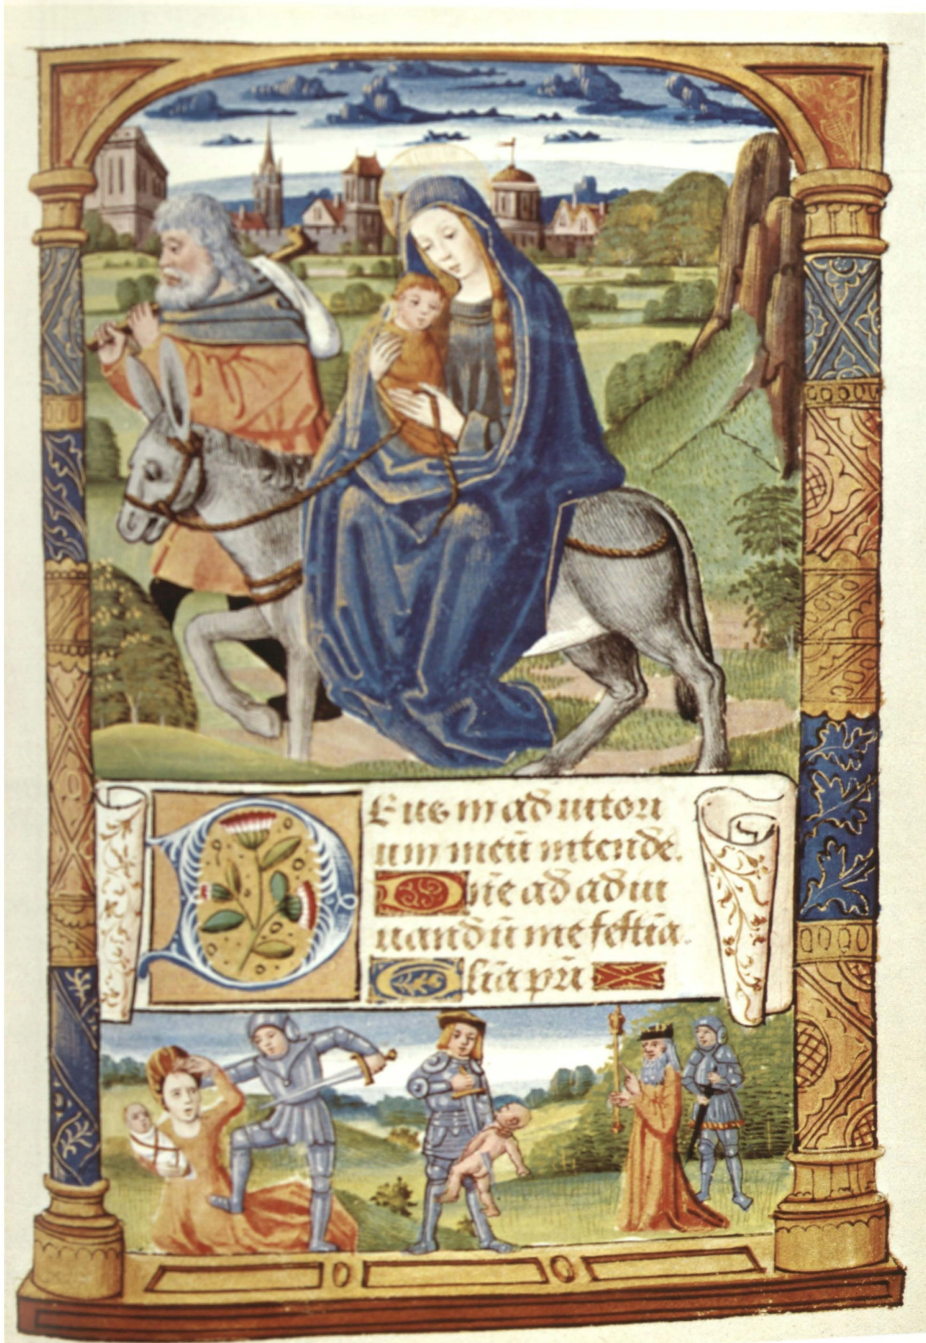 Deus in adiutori
um meū intende.
Dn̄e ad adiu
uandū me festīa.
Gl̄ia pr̄i